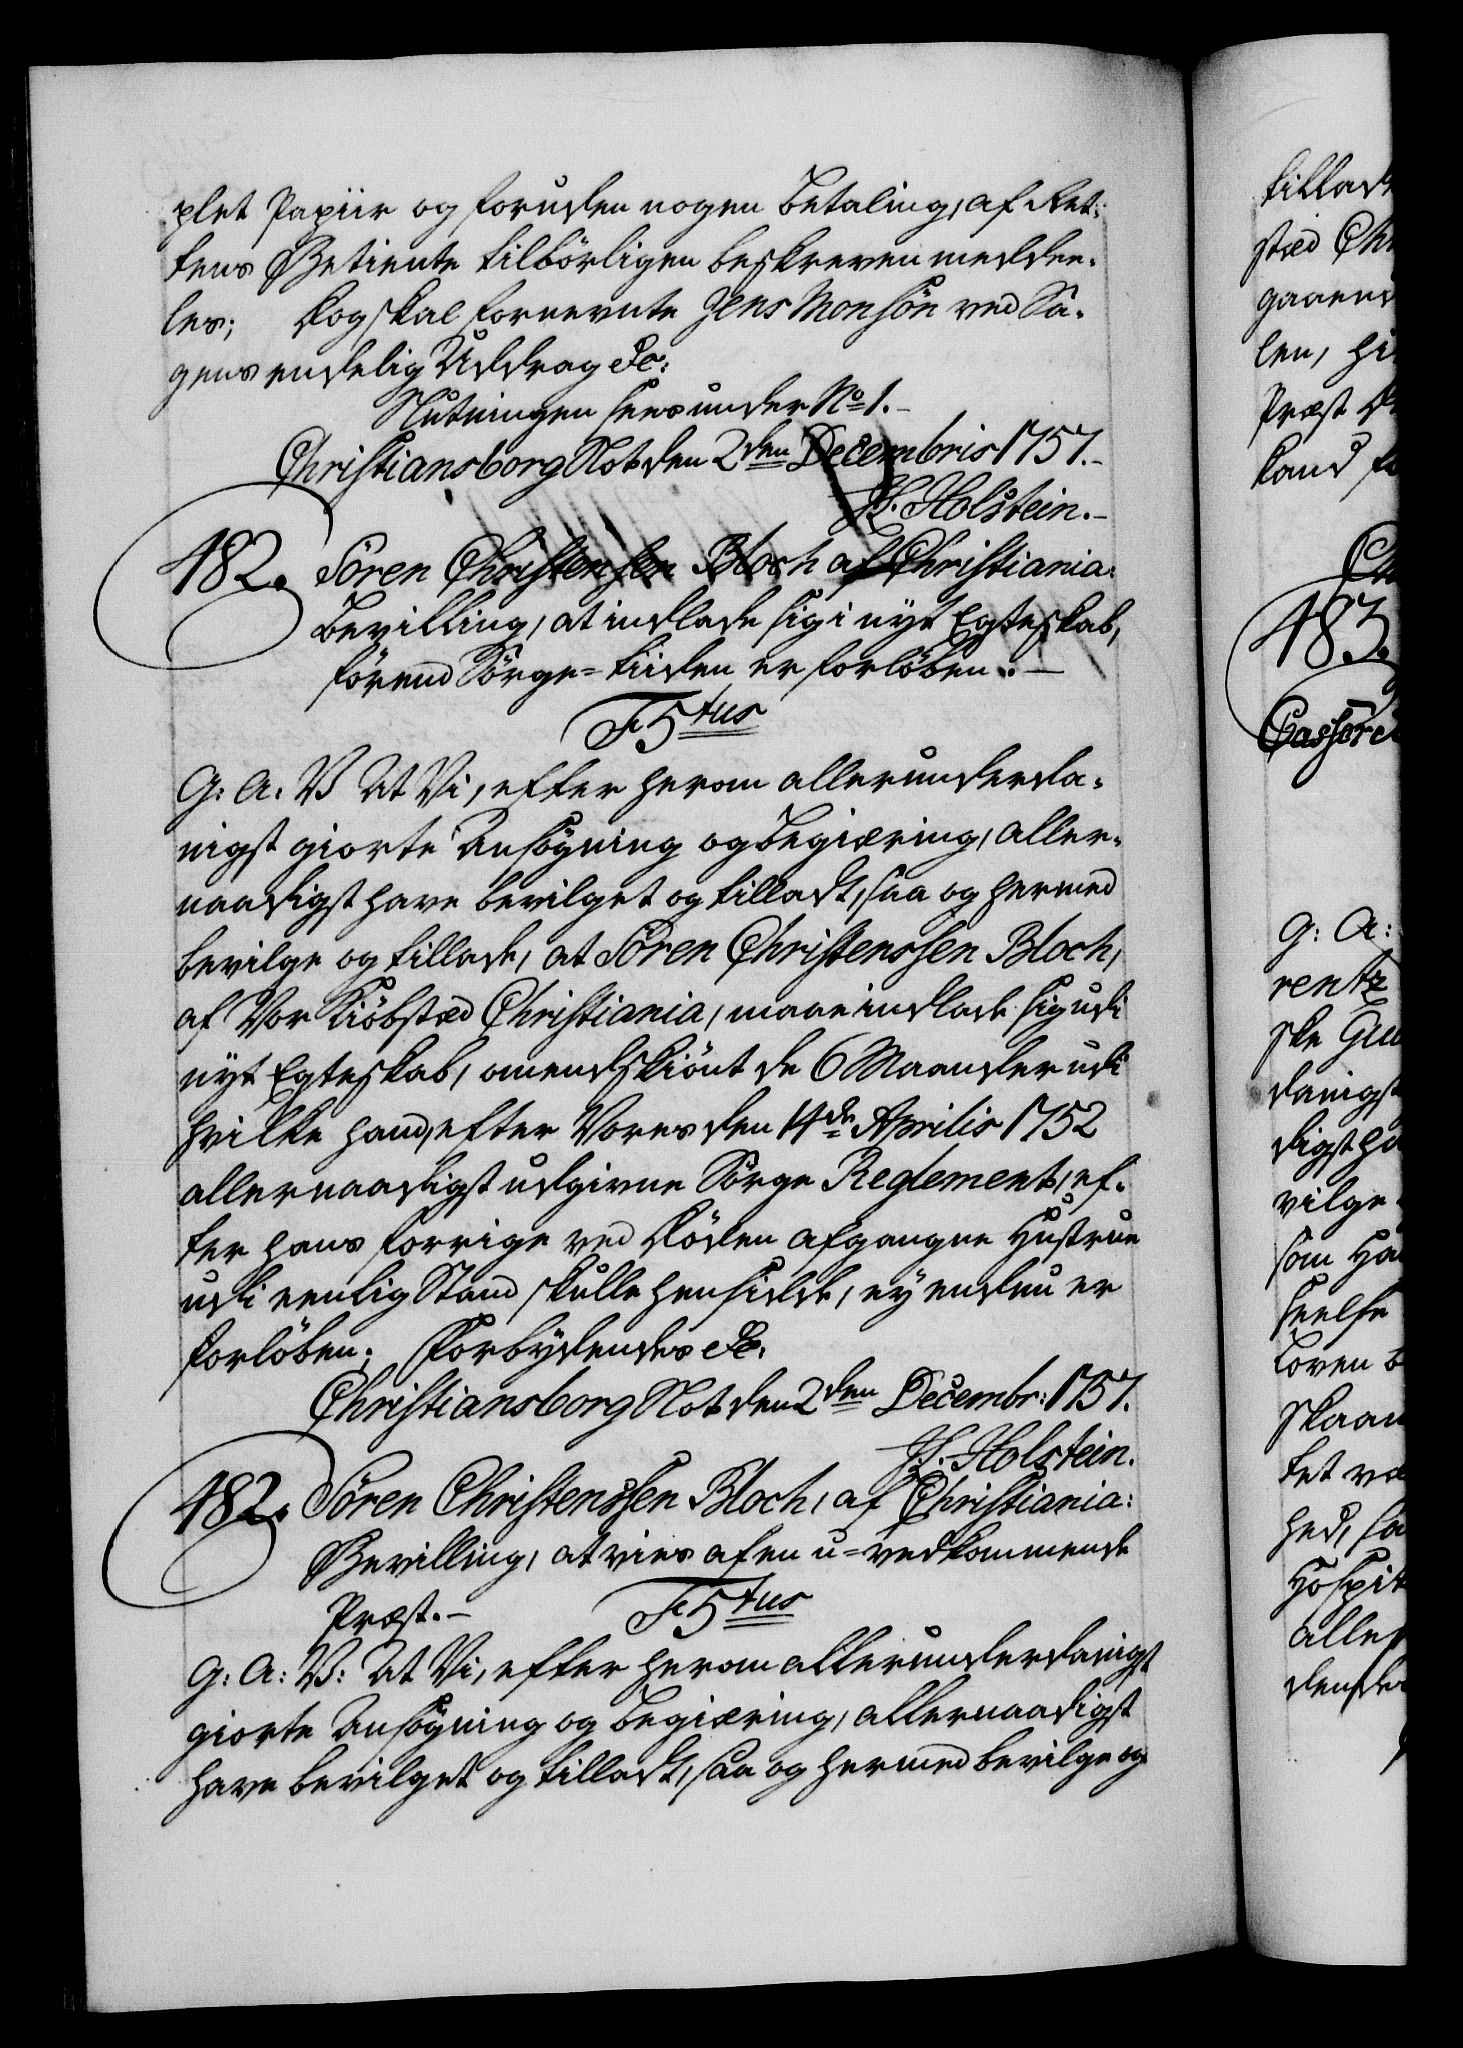 plet Papiir og foruden nogen Betaling, af Ret-
tens Betiente tilbörligen beskreven meddee-
les; Dog skal fornevnte Jens Monsön ved Sa-
gens endelig Uddrag &c:
Slutningen sees under No 1.-
Christiansborg Slot den 2den Decembris 1757.-
H. Holstein.-
182. Sören Christensen Bloch af Christiania:
Bevilling, at indlade sig i nyt Egteskab,
förend Sørge-tiden er forløben:-
F5tus
G: A. V At Vi, efter herom allerunderda-
nigst giorte Ansøgning og Begiæring, aller-
naadigst have bevilget og tilladt, saa og hermed
bevilge og tillade, at Sören Christenssen Bloch,
af Vor Kiöbstæd Christiania, maae indlade sig udi
nyt Egteskab, omendskiönt de 6 Maaneder udi
hvilke hand, efter Vores den 14de Aprilis 1752
allernaadigst udgivne Sørge Reglement, ef-
ter hans forrige ved Döden afgangne Hustrue
udi eenlig Stand skulle hensidde, ey endnu er
forløben; Forbydendes &c.
Christiansborg Slot den 2den Decembr: 1757.
H. Holstein.
182. Sören Christenssen Bloch, af Christiania:
Bevilling, at vies af en u-vedkommende
Præst.- F5tus
G: A: V: At Vi, efter herom allerunderdanigst
giorte Ansøgning og Begiæring, allernaadigst
have bevilget og tilladt, saa og hermed bevilge og
tillad
stæd Ch
gaaend
len, hi
Præst
kand
183.
G: A:
rentz
ske Gu
danigst
digst ha
vilge
som Ha
seelse
Loven b
skaan
tet
hed, sa
Hospit
aller
dendes